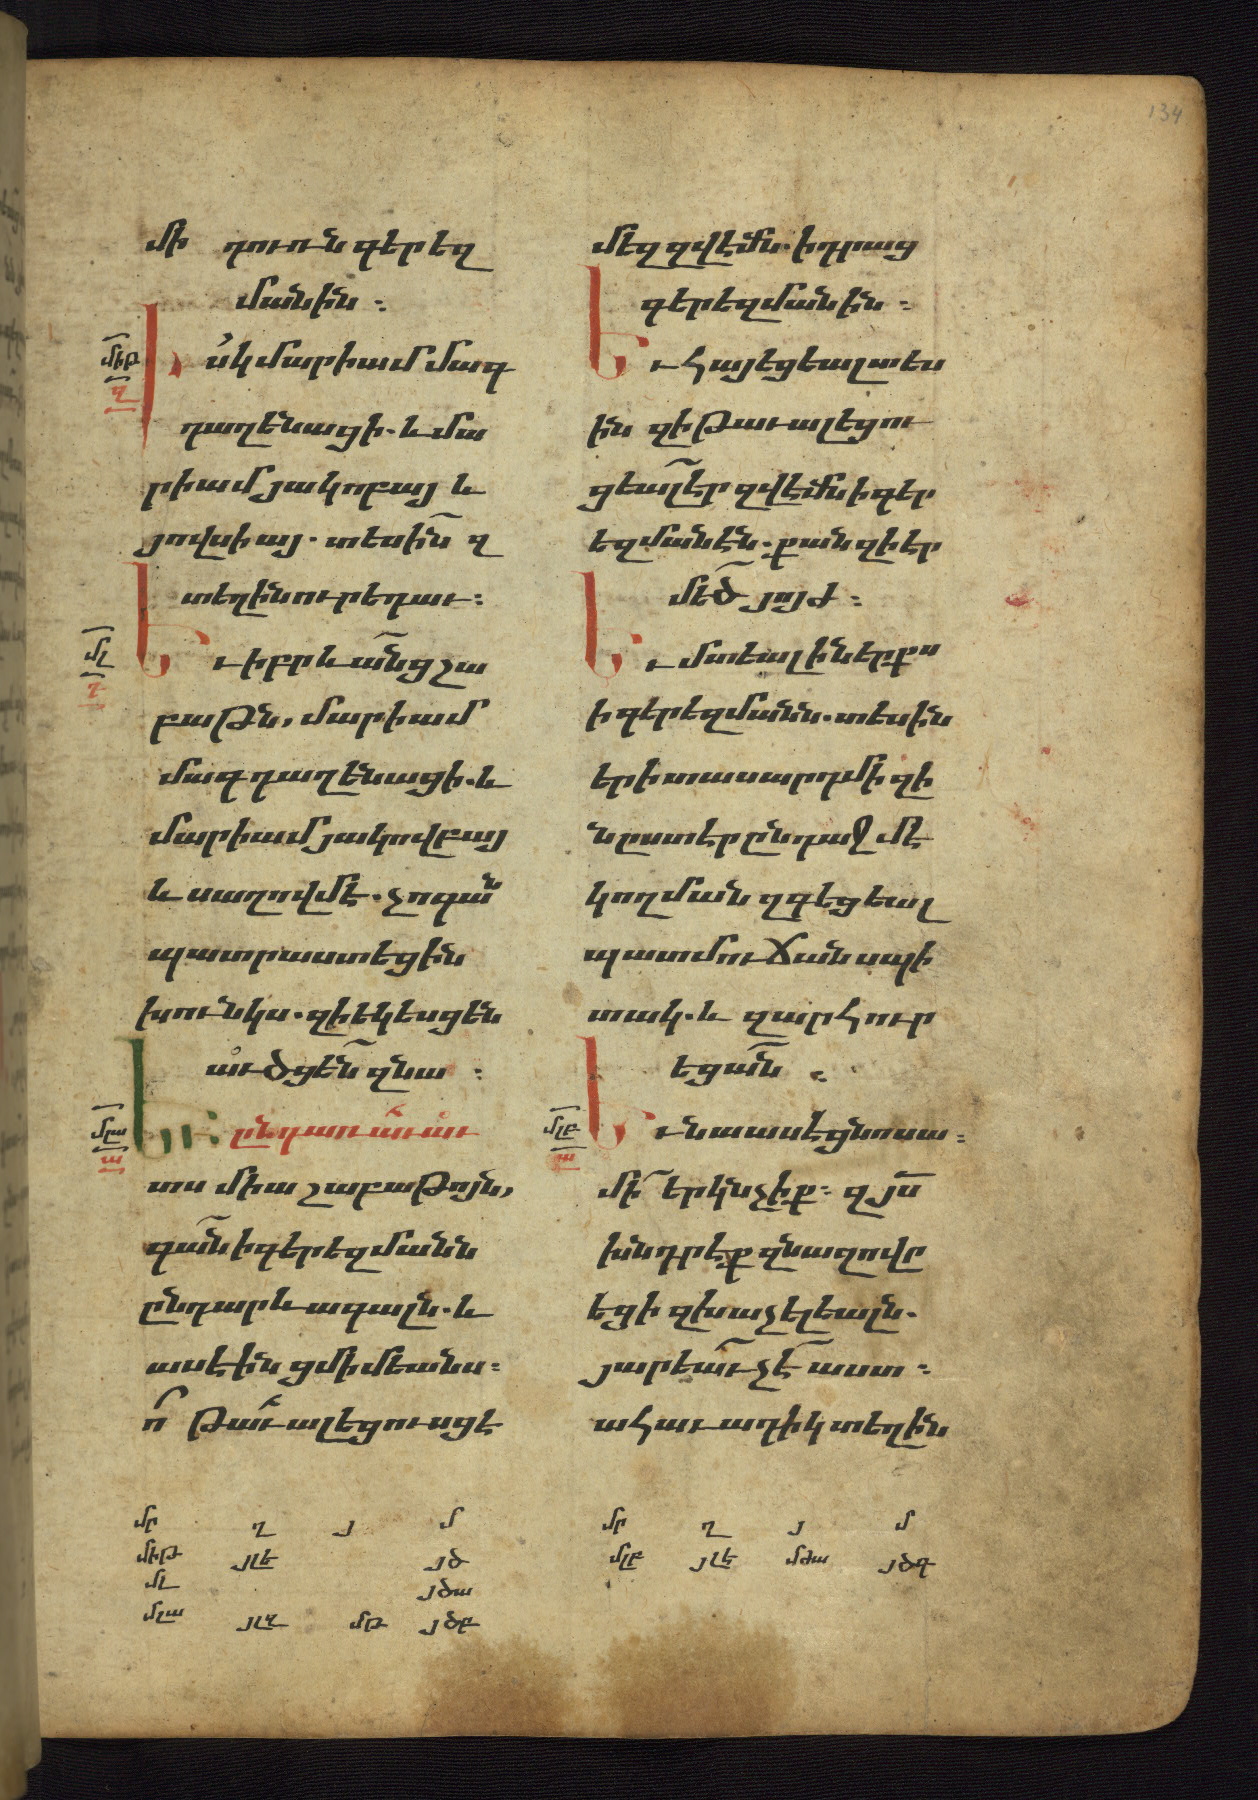 134
մի դուռն գերեզ
մանին :
Իսկ մարիամ մագ
դաղենացի. և մա
րիամ յակոբայ և
յովսիայ. տեսին զ
տեղին ուր եդաւ :
Եւ իբրև անց շա
բաթն, մարիամ
մագդաղենացի. և
մարիամ յակովբայ
և սաղովմէ. չոգան
պատրաստեցին
խունկս. զի եկեսցեն
աւծցեն զնա :
Եւ ընդ առաւաւ
տս միաշաբաթոյն,
գան ի գերեզմանն
ընդ արևագալն. և
ասէին ցմիմեանս :
ո՞ թաւալեցուսցէ
մեզ զվէմն. ի դրաց
գերեզմանին :
Եւ հայեցեալ տես
ին զի թաւալեցու
ցեալ էր զվէմն ի գեր
եզմանէն. քանզի էր
մեծ յոյժ :
Եւ մտեալ ի ներքս
ի գերեզմանն. տեսին
երիտասարդ մի զի
նըստէր ընդ աջմէ
կողմանն զգեցեալ
պատմուճան սպի
տակ. և զարհուր
եցան :
Եւ նա ասէ ցնոսա :
մի երկնչիք : զյս
խնդրէք զնազովր
եցի զխաչելեալն.
յարեաւ չէ աստ :
ահաւադիկ տեղին
միթ
մլ
մլա
մլբ